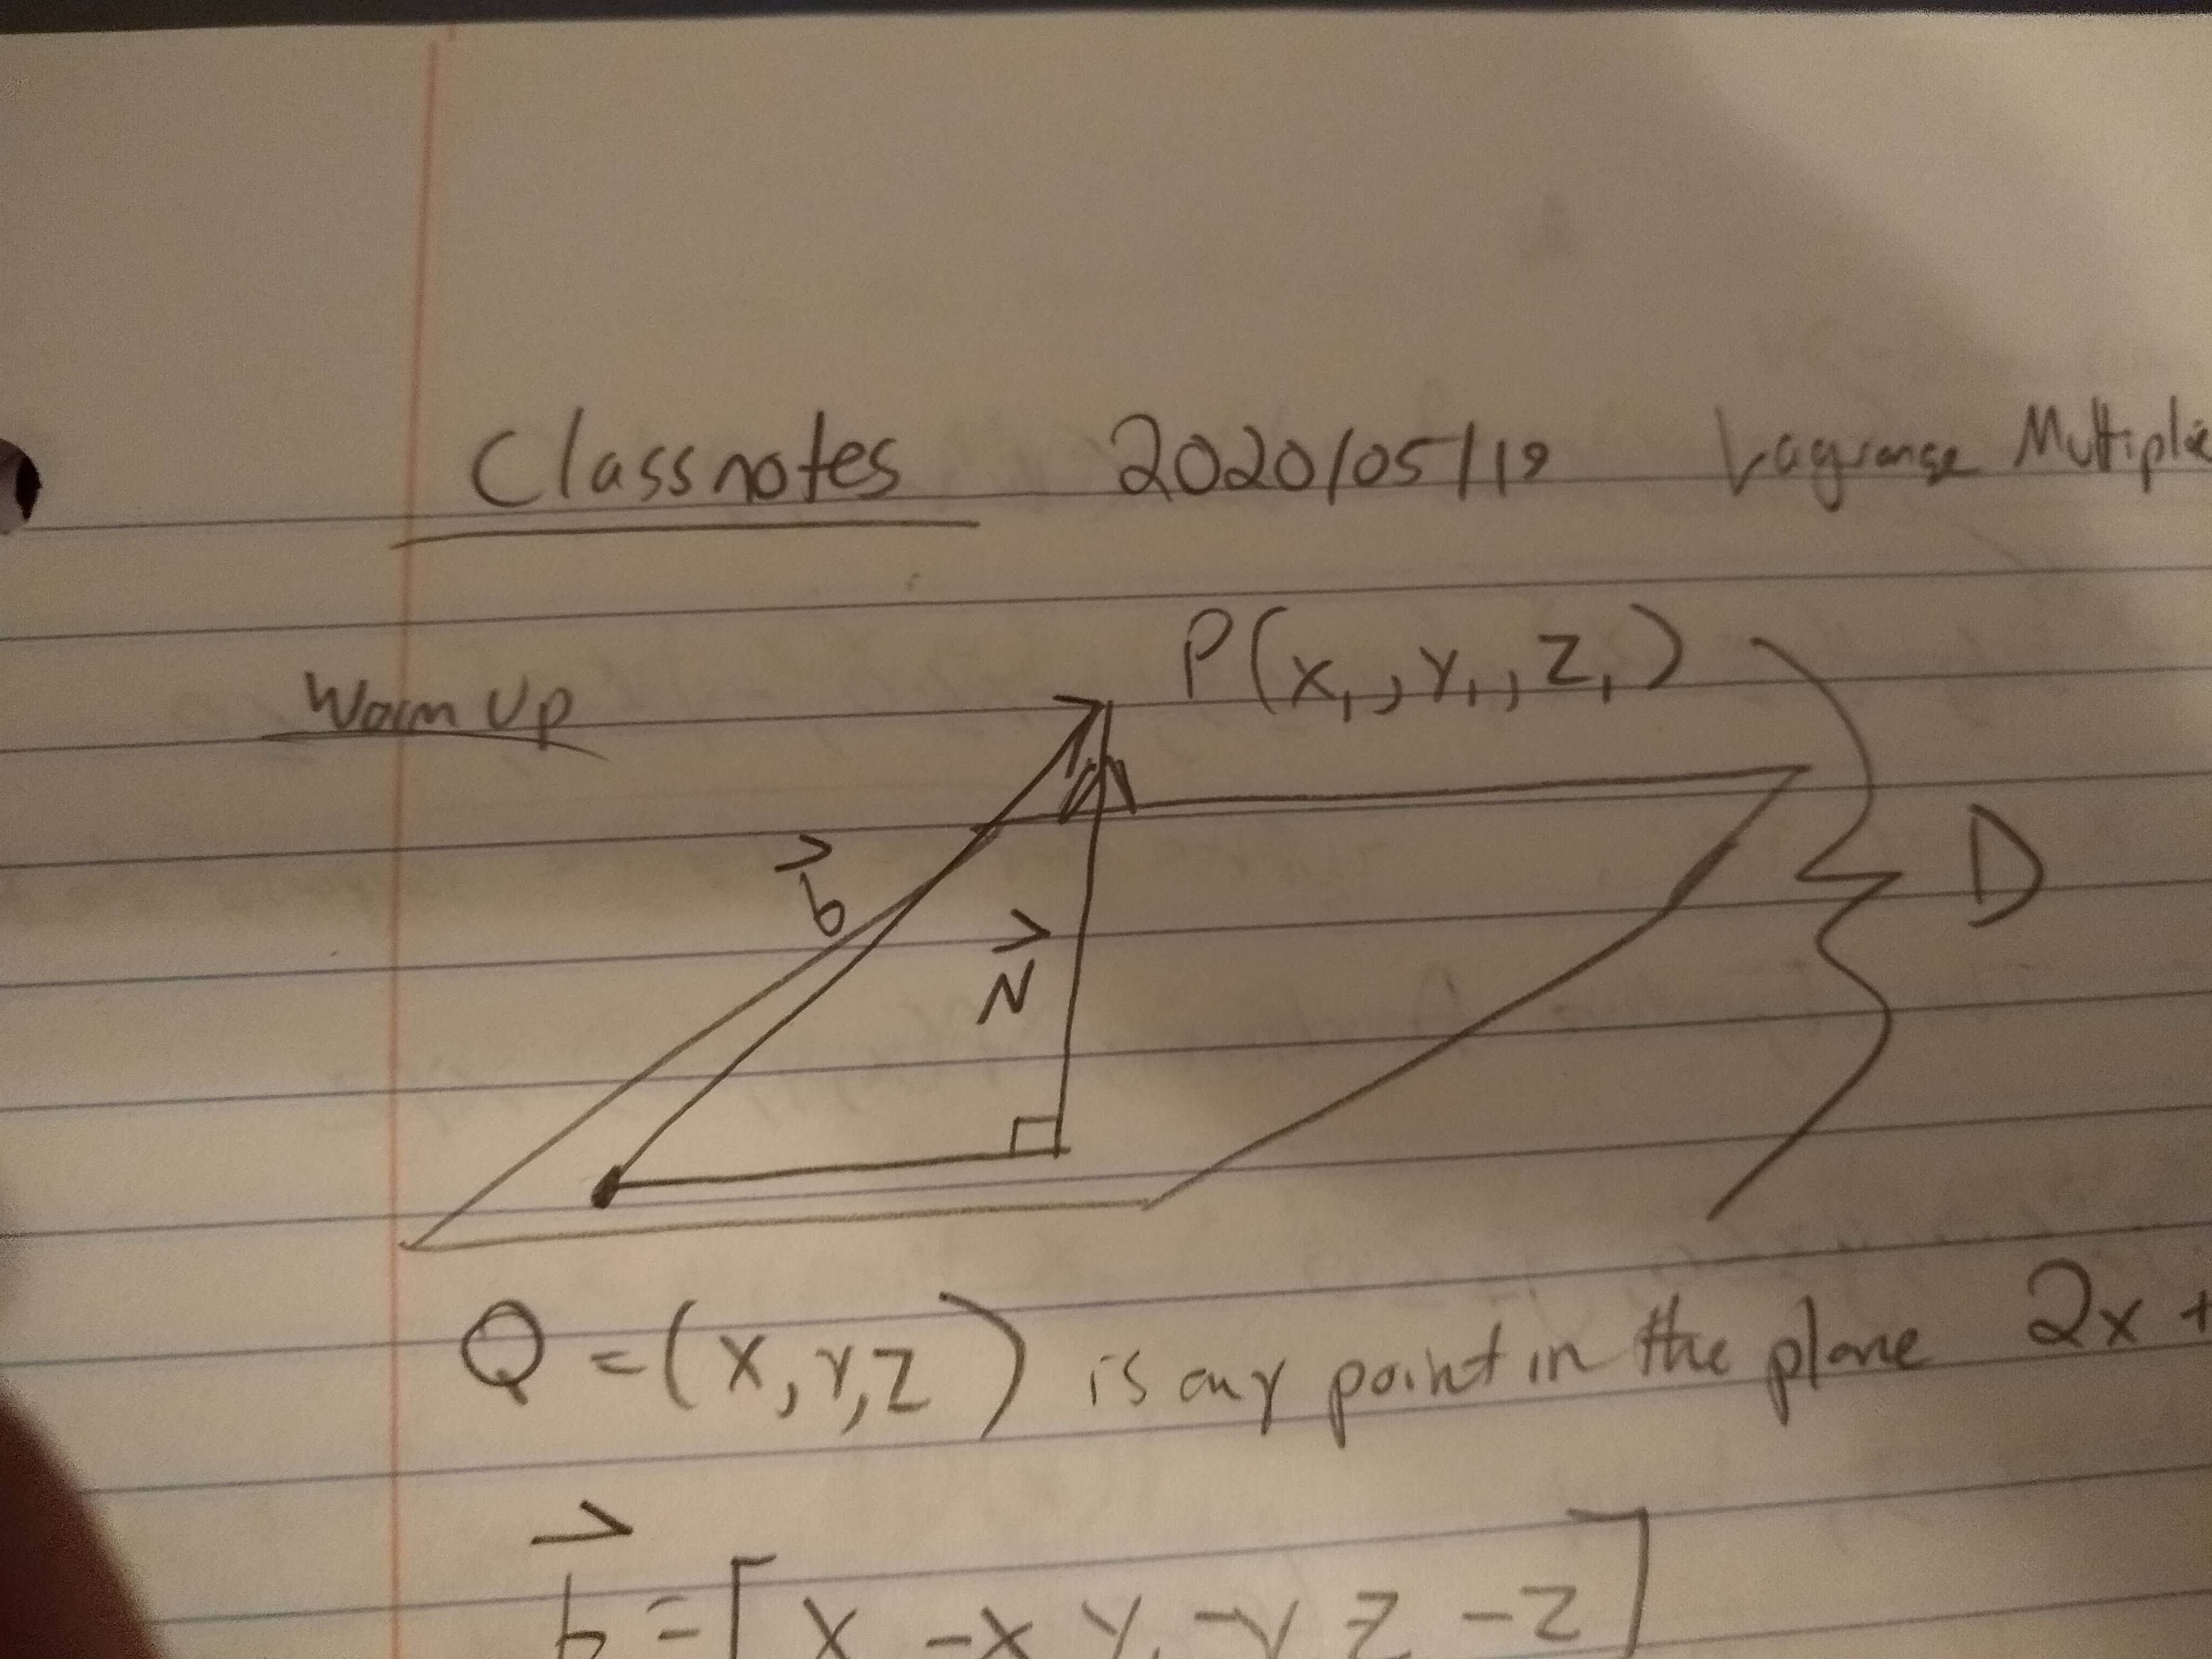 Classnotes 2020/05/19 Lagrange Multiplie
Warm Up
P(x₁, y₁, z₁)
b
D
N
Q = (x, y, z) is any point in the plane 2x +
b = [x - x y₁ - y z - z]